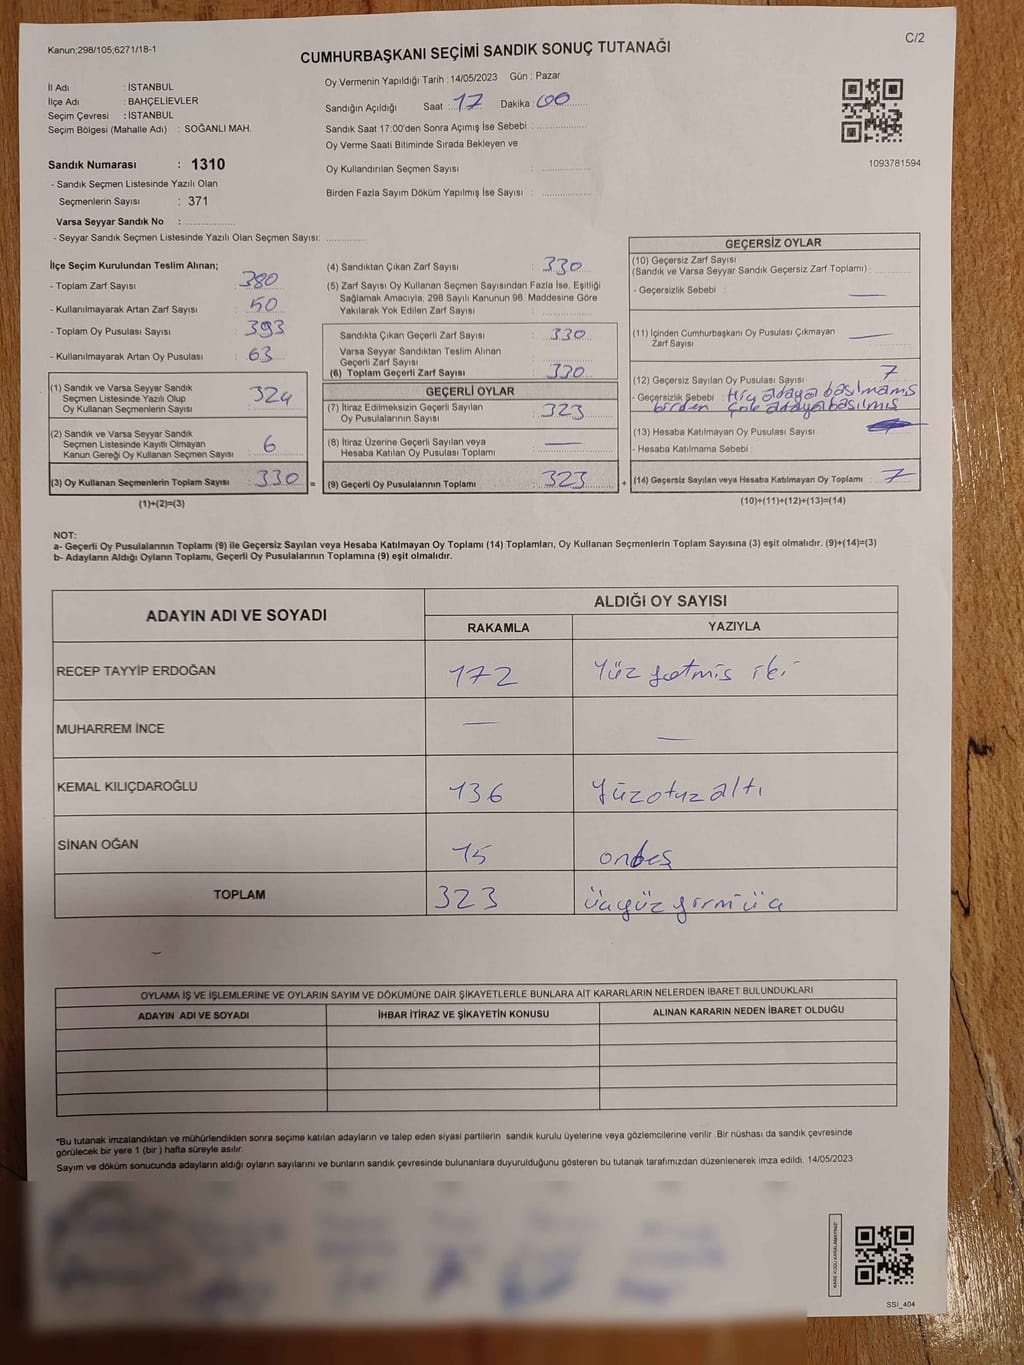 Kanun;298/105;6271/18-1
C/2
CUMHURBAŞKANI SEÇİMİ SANDIK SONUÇ TUTANAĞI
İl Adı : İSTANBUL
İlçe Adı : BAHÇELİEVLER
Seçim Çevresi : İSTANBUL
Seçim Bölgesi (Mahalle Adı) : SOĞANLI MAH.
Sandık Numarası : 1310
- Sandık Seçmen Listesinde Yazılı Olan
Seçmenlerin Sayısı : 371
Varsa Seyyar Sandık No :
- Seyyar Sandık Seçmen Listesinde Yazılı Olan Seçmen Sayısı:
Oy Vermenin Yapıldığı Tarih : 14/05/2023 Gün : Pazar
Sandığın Açıldığı Saat : 17 Dakika : 00
Sandık Saat 17:00'den Sonra Açımış İse Sebebi :
Oy Verme Saati Bitiminde Sırada Bekleyen ve
Oy Kullandırılan Seçmen Sayısı :
Birden Fazla Sayım Döküm Yapılmış İse Sayısı :
1093781594
İlçe Seçim Kurulundan Teslim Alınan;
- Toplam Zarf Sayısı : 380
- Kullanılmayarak Artan Zarf Sayısı : 50
- Toplam Oy Pusulası Sayısı : 393
- Kullanılmayarak Artan Oy Pusulası : 63
(1) Sandık ve Varsa Seyyar Sandık
Seçmen Listesinde Yazılı Olup
Oy Kullanan Seçmenlerin Sayısı : 324
(2) Sandık ve Varsa Seyyar Sandık
Seçmen Listesinde Kayıtlı Olmayan
Kanun Gereği Oy Kullanan Seçmen Sayısı : 6
(3) Oy Kullanan Seçmenlerin Toplam Sayısı : 330 =
(1)+(2)=(3)
(4) Sandıktan Çıkan Zarf Sayısı : 330
(5) Zarf Sayısı Oy Kullanan Seçmen Sayısından Fazla İse, Eşitliği
Sağlamak Amacıyla, 298 Sayılı Kanunun 98. Maddesine Göre
Yakılarak Yok Edilen Zarf Sayısı :
Sandıkta Çıkan Geçerli Zarf Sayısı : 330
Varsa Seyyar Sandıktan Teslim Alınan
Geçerli Zarf Sayısı :
(6) Toplam Geçerli Zarf Sayısı : 330
GEÇERLİ OYLAR
(7) İtiraz Edilmeksizin Geçerli Sayılan
Oy Pusulalarının Sayısı : 323
(8) İtiraz Üzerine Geçerli Sayılan veya
Hesaba Katılan Oy Pusulası Toplamı : —
(9) Geçerli Oy Pusulalarının Toplamı : 323 +
GEÇERSİZ OYLAR
(10) Geçersiz Zarf Sayısı
(Sandık ve Varsa Seyyar Sandık Geçersiz Zarf Toplamı) :
- Geçersizlik Sebebi : —
(11) İçinden Cumhurbaşkanı Oy Pusulası Çıkmayan
Zarf Sayısı : —
(12) Geçersiz Sayılan Oy Pusulası Sayısı : 7
- Geçersizlik Sebebi : Hiç adaya basılmamış
birden çok adaya basılmış
(13) Hesaba Katılmayan Oy Pusulası Sayısı :
- Hesaba Katılmama Sebebi :
(14) Geçersiz Sayılan veya Hesaba Katılmayan Oy Toplamı : 7
(10)+(11)+(12)+(13)=(14)
NOT:
a- Geçerli Oy Pusulalarının Toplamı (9) ile Geçersiz Sayılan veya Hesaba Katılmayan Oy Toplamı (14) Toplamları, Oy Kullanan Seçmenlerin Toplam Sayısına (3) eşit olmalıdır. (9)+(14)=(3)
b- Adayların Aldığı Oyların Toplamı, Geçerli Oy Pusulalarının Toplamına (9) eşit olmalıdır.
ADAYIN ADI VE SOYADI
ALDIĞI OY SAYISI
RAKAMLA YAZIYLA
RECEP TAYYİP ERDOĞAN 172 Yüz yetmiş iki
MUHARREM İNCE — —
KEMAL KILIÇDAROĞLU 136 Yüzotuzaltı
SİNAN OĞAN 15 onbeş
TOPLAM 323 üçyüzyirmiüç
OYLAMA İŞ VE İŞLEMLERİNE VE OYLARIN SAYIM VE DÖKÜMÜNE DAİR ŞİKAYETLERLE BUNLARA AİT KARARLARIN NELERDEN İBARET BULUNDUKLARI
ADAYIN ADI VE SOYADI İHBAR İTİRAZ VE ŞİKAYETİN KONUSU ALINAN KARARIN NEDEN İBARET OLDUĞU
*Bu tutanak imzalandıktan ve mühürlendikten sonra seçime katılan adayların ve talep eden siyasi partilerin sandık kurulu üyelerine veya gözlemcilerine verilir. Bir nüshası da sandık çevresinde
görülecek bir yere 1 (bir ) hafta süreyle asılır.
Sayım ve döküm sonucunda adayların aldığı oyların sayılarını ve bunların sandık çevresinde bulunanlara duyurulduğunu gösteren bu tutanak tarafımızdan düzenlenerek imza edildi. 14/05/2023
KARE KODU KARALAMAYINIZ!
SSI_404